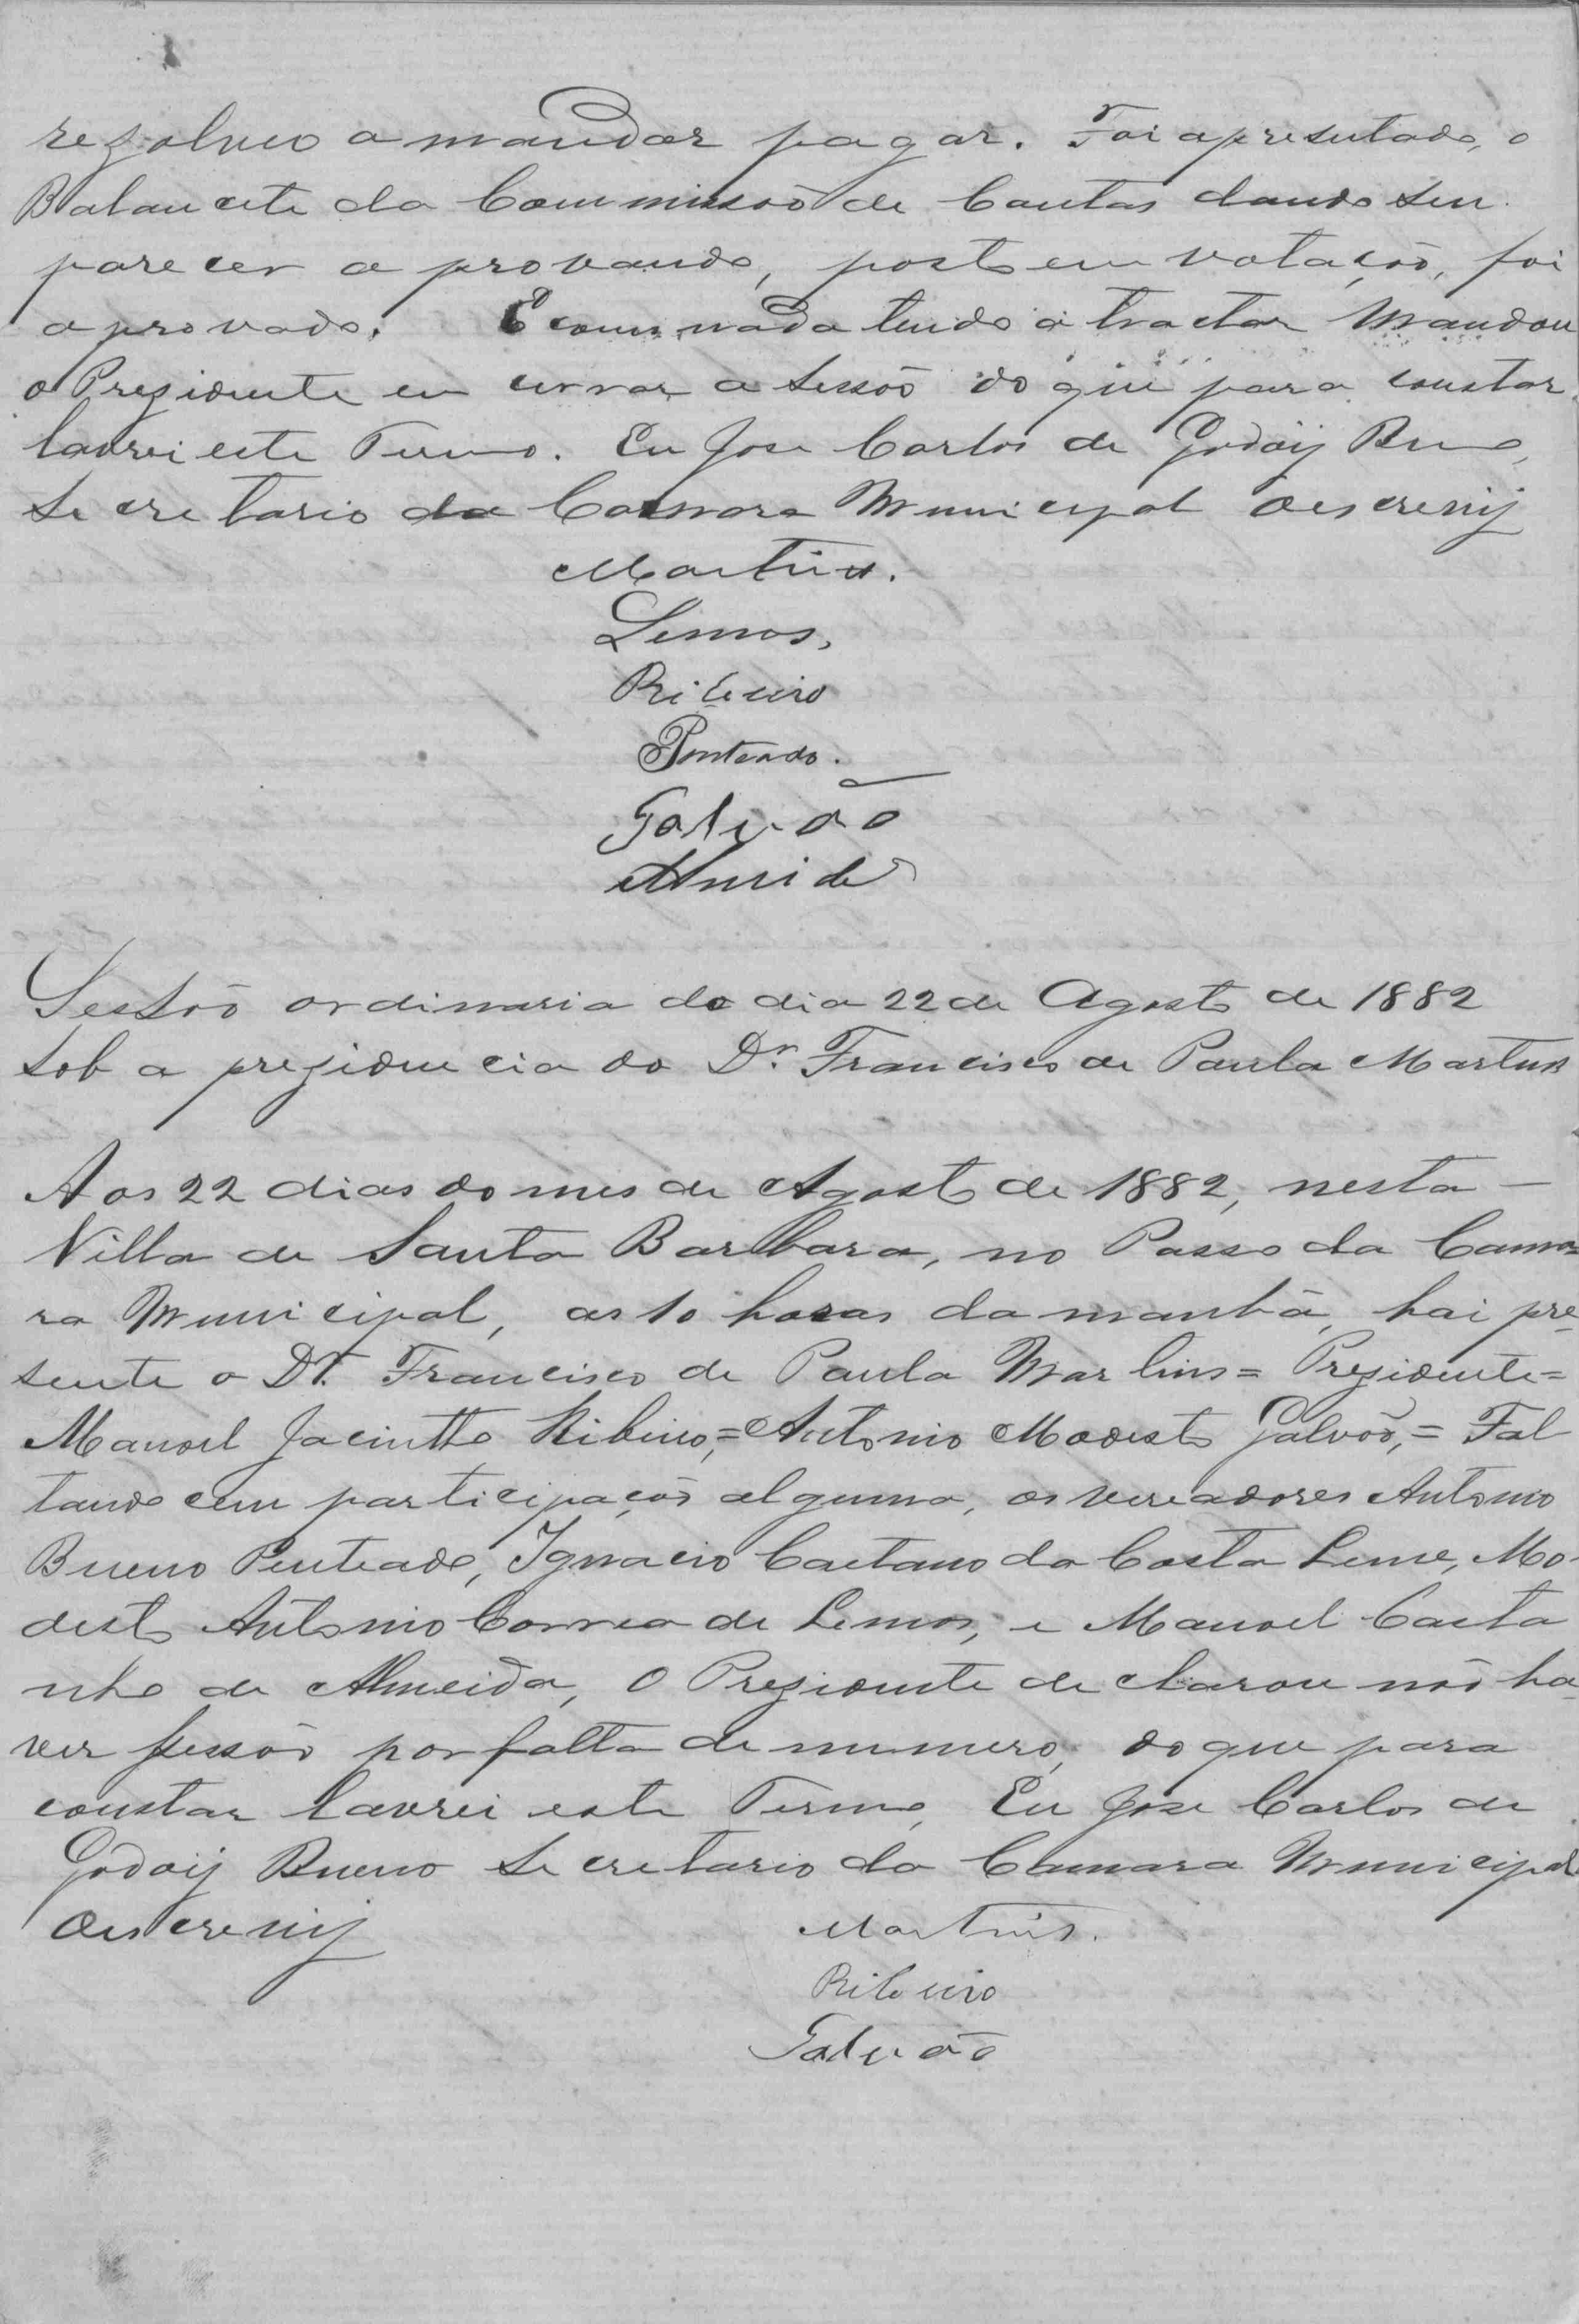 rezolveo a mandar pagar. Foi apresentado, o
Balancete da Commissão de Contas dando seu
parecer aprovando, posto em votação, foi
aprovado. E como nada tendo a tractar mandou
o Prezidente encerrar a sessão do que para constar
lavrei este Termo. Eu Jose Carlos de Godoij Bueno,
Secretario da Camara Municipal o escrevij
Martins.
Lemos,
Ribeiro
Penteado.
Galvão
Almeida
Sessão ordinaria do dia 22 de Agosto de 1882
sob a prezidencia do Dr. Francisco de Paula Martins
Aos 22 dias do mes de Agosto de 1882, nesta -
Villa de Santa Barbara, no Passo da Cama=
ra Municipal, as 10 horas da manhã, hai pre-
sente o Dr. Francisco de Paula Martins = Prezidente =
Manoel Jacintho Ribeiro, = Antonio Modesto Galvão, = Fal
tando cem participação alguma, os vereadores Antonio
Bueno Penteado, Ignacio Caetano da Costa Leme, Mo-
desto Antonio Correa de Lemos, e Manoel Casta
nho de Almeida, O Prezidente declarou não ha-
ver sessão por falta de numero, do que para
constar lavrei este Termo, Eu Jose Carlos de
Godoij Bueno Secretario da Camara Municipal
o escrevij
Martins.
Ribeiro
Galvão